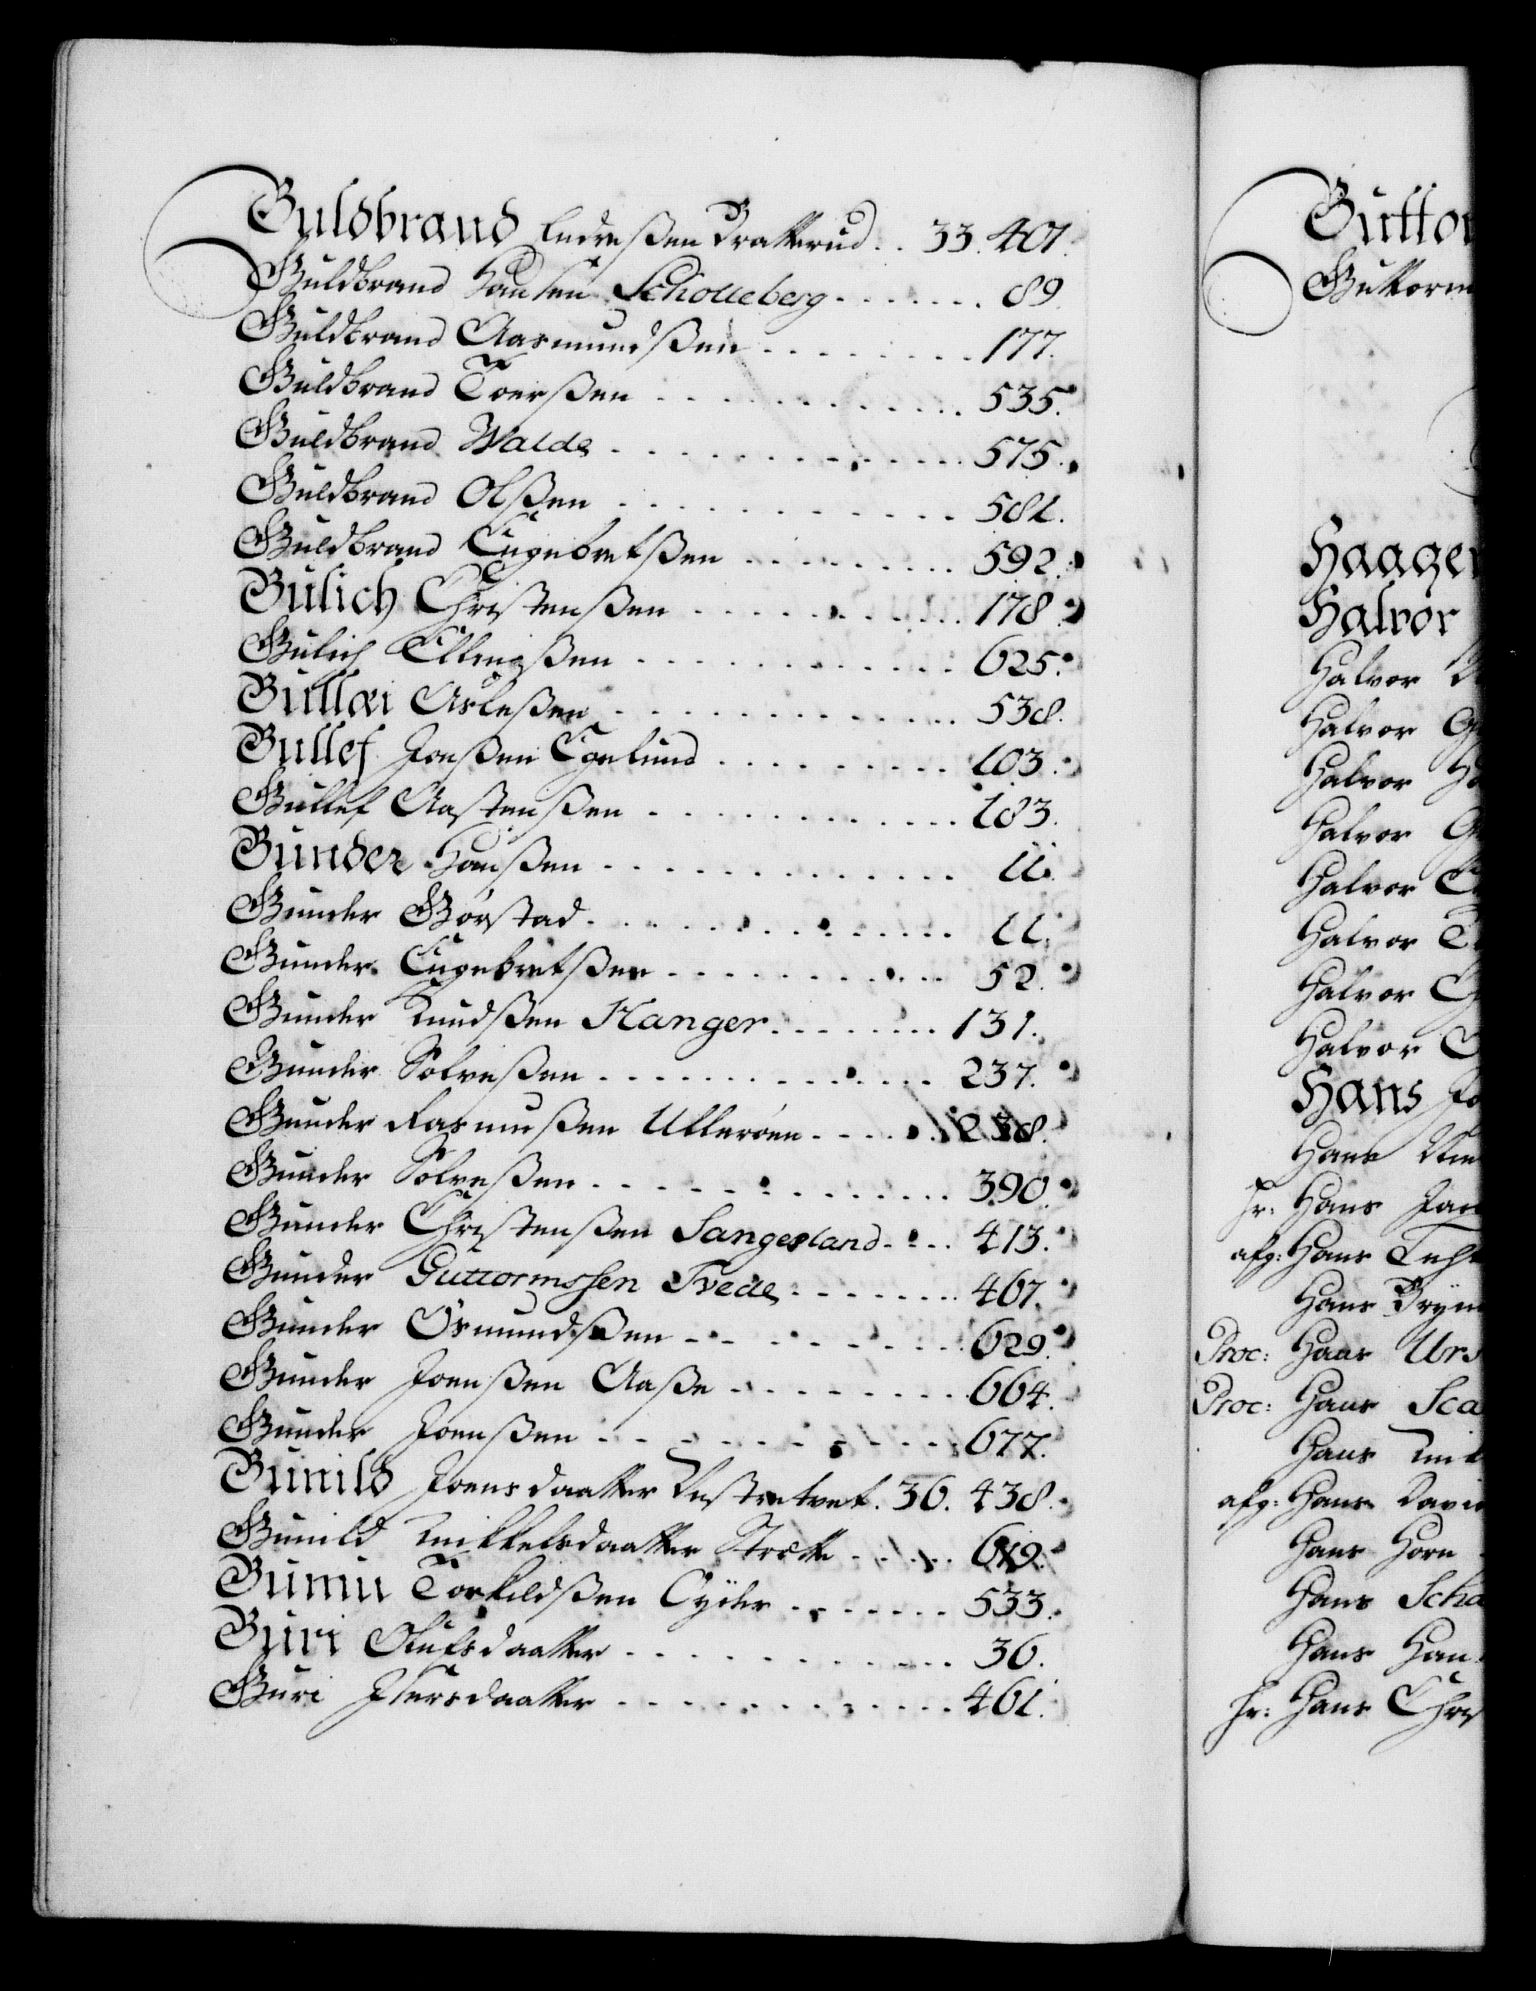 Guldbrand Endresßen Bratterud . . 33. 407.
Guldbrand Hansen Scholleberg . . . . . . . 89
Guldbrand Aasmundsßen . . . . . . . . 177.
Guldbrand Toersßen . . . . . . . . . . . 535.
Guldbrand Walde . . . . . . . . . . . . 575.
Guldbrand Olsßen . . . . . . . . . . . 581.
Guldbrand Engebretsßen . . . . . . . . . 592.
Gulich Christensßen . . . . . . . . . . 178.
Gulich Ellingsßen . . . . . . . . . . . 625.
Gullæi Aslesßen . . . . . . . . . . . . 538.
Gullef Jonsßen Egelund . . . . . . . . . 103.
Gullef Aastensßen . . . . . . . . . . . 183.
Gunder Hansßen . . . . . . . . . . . . 11.
Gunder Børstad . . . . . . . . . . . . 11.
Gunder Engebretsßen . . . . . . . . . . 52.
Gunder Knudsßen Hanger . . . . . . . . 131.
Gunder Solvesßen . . . . . . . . . . . . 237.
Gunder Rasmusßen Ullerøen . . . . . . 238.
Gunder Solvesßen . . . . . . . . . . . . 390.
Gunder Christensßen Sangesland . . . . 413.
Gunder Guttormssen Tvede . . . . . . . . 467.
Gunder Osmundsßen . . . . . . . . . . 629.
Gunder Joensßen Aaße . . . . . . . . . 664.
Gunder Joensßen . . . . . . . . . . . 677.
Gunild Joensdaatter . 36. 438.
Gunild Mikkelsdaatter . . . . . 619.
Gunnu Torkildsßen . . . . . . . 533.
Guri Olufsdaatter . . . . . . . . . . . 36.
Guri Ifversdaatter . . . . . . . . . . . 461.
Guttor
Guttorm
Haagen
Halvor
Halvor
Halvor
Halvor
Halvor
Halvor
Halvor
Halvor
Halvor
Hans
Hans
Hr: Hans
afg: Hans
Hans
Proc: Hans Urs
Proc: Hans Sca
Hans
afg: Hans David
Hans Horn
Hans Scha
Hans Han
Hr: Hans Chris